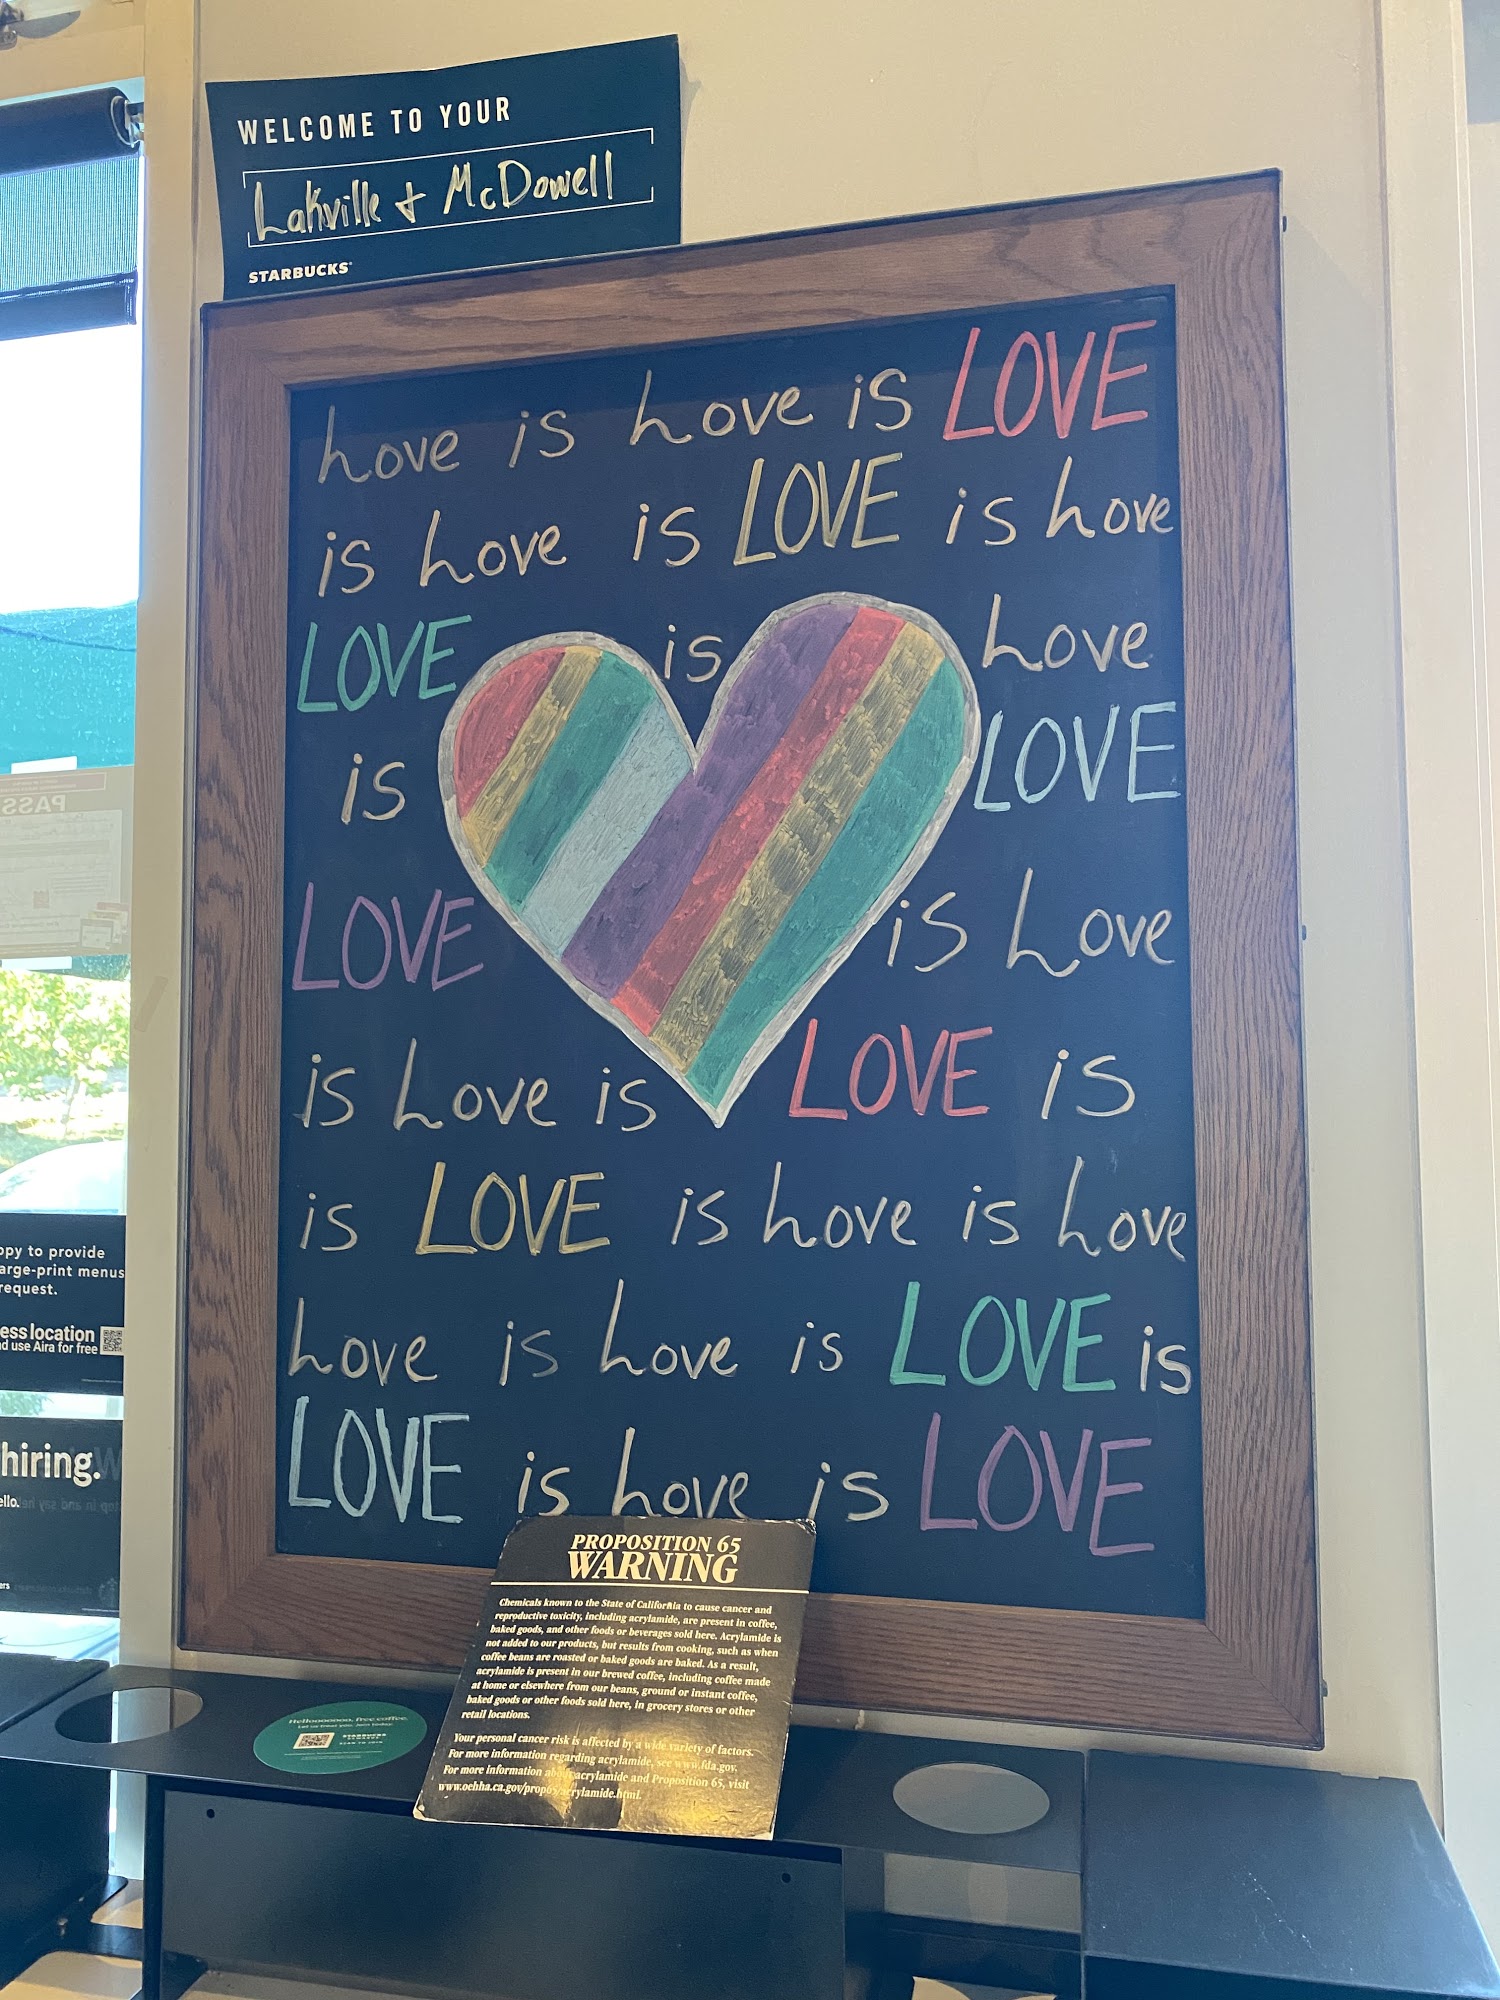 WELCOME TO YOUR
Lakville & McDowell
STARBUCKS
Love is Love is LOVE
is Love is LOVE is Love
LOVE is Love
is LOVE
LOVE is Love
is Love is LOVE is
is LOVE is Love is Love
Love is Love is LOVE is
LOVE is Love is LOVE
PROPOSITION 65
WARNING
Chemicals known to the State of California to cause cancer and
reproductive toxicity, including acrylamide, are present in coffee,
baked goods, and other foods or beverages sold here. Acrylamide is
not added to our products, but results from cooking, such as when
coffee beans are roasted or baked goods are baked. As a result,
acrylamide is present in our brewed coffee, including coffee made
at home or elsewhere from our beans, ground or instant coffee,
baked goods or other foods sold here, in grocery stores or other
retail locations.
Your personal cancer risk is affected by a wide variety of factors.
For more information regarding acrylamide, see www.fda.gov.
For more information about acrylamide and Proposition 65, visit
www.oehha.ca.gov/prop65/acrylamide.html.
Hellooooooo, free coffee.
Let us treat you. Join today.
PASS
to provide
large-print menus
request.
location
use Aira for free
hiring.